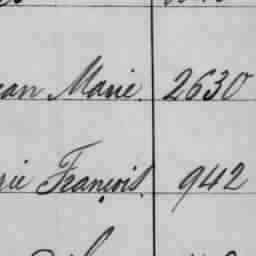 ean Marie. 2630
rie François. 942